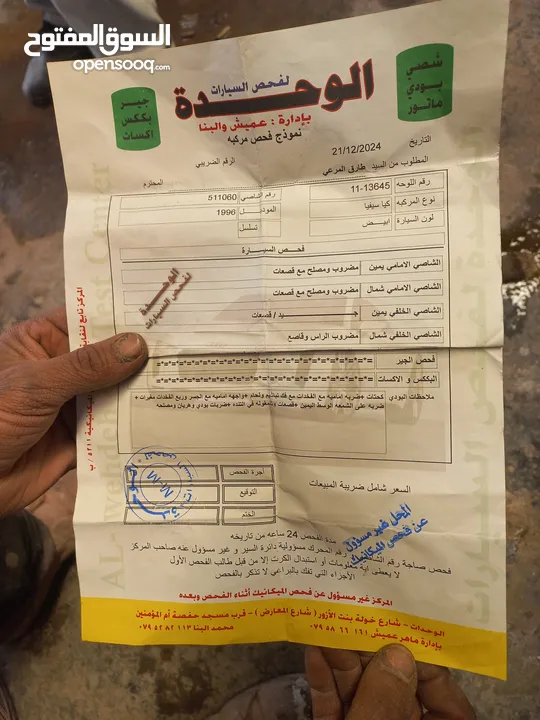 السوق المفتوح
opensooq.com
شصي
بودي
ماتور
لفحص السيارات
الوحدة
جير
بككس
اكسات
بإدارة : عميش والبنا
نموذج فحص مركبه
التاريخ
21/12/2024
الرقم الضريبي
المطلوب من السيد طارق المرعي
المحترم
رقم اللوحه
11-13645
رقم الشاصي
511060
نوع المركبه
كيا سيفيا
الموديل
1996
لون السيارة
ابيض
تسلسل
فحص السيارة
الشاصي الامامي يمين
مضروب ومصلح مع قصعات
الشاصي الامامي شمال
مضروب ومصلح مع قصعات
الشاصي الخلفي يمين
جيد / قصعات
الشاصي الخلفي شمال
مضروب الراس وقاصع
فحص الجير
البككس و الاكسات
الوحدة
لفحص السيارات
ملاحظات البودي
كحتات + ضربه اماميه مع الفخدات مع فك تبشيم ولحام + واجهه اماميه مع الجسر وربع الفخدات مغيرات +
ضربه على الشمعه الوسط اليمين + قصعات وشغوله في التنده + ضربات بودي وهريان ومصلح
أجرة الفحص
التوقيع
الختم
السعر شامل ضريبة المبيعات
المحل غير مسؤول
عن فحص الميكانيك
مدة الفحص 24 ساعه من تاريخه
فحص صباحة رقم المحرك مسؤولية دائرة السير و غير مسؤول عنه صاحب المركز
لا يعطى اية معلومات أو استبدال الكرت إلا من قبل طالب الفحص الأول
الأجزاء التي تفك بالبراغي لا تذكر بالفحص
المركز غير مسؤول عن فحص الميكانيك أثناء الفحص وبعده
الوحدات - شارع خولة بنت الأزور ( شارع المعارض ) - قرب مسجد حفصة أم المؤمنين
بإدارة ماهر عميش ١٦١ ٦٦ ٥٨ ٠٧٩٥
محمد البنا ١١٣ ٨٢ ٥٢ ٠٧٩